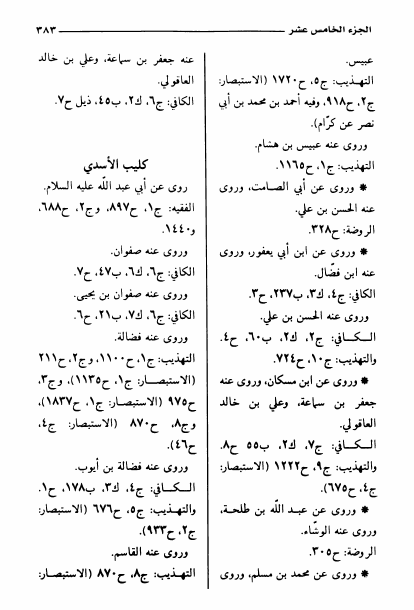 الجزء الخامس عشر ٣٨٣
عبيس.
التهذيب: ج٥، ح١٧٢٠ (الاستبصار:
ج٢، ح٩١٨، وفيه أحمد بن محمد بن أبي
نصر عن كرّام).
وروى عنه عبيس بن هشام.
التهذيب: ج١، ح١١٦٥.
* وروى عن أبي الصامت، وروى
عنه الحسن بن علي.
الروضة: ح٣٢٨.
* وروى عن ابن أبي يعفور، وروى
عنه ابن فضّال.
الكافي: ج٤، ك٣، ب٢٣٧، ح٣.
وروى عنه الحسن بن علي.
الـكـافي: ج٢، ك٢، ب٦٠، ح٤.
والتهذيب: ج١٠، ح٧٢٤.
* وروى عن ابن مسكان، وروى عنه
جعفر بن سماعة، وعلي بن خالد
العاقولي.
الـكـافي: ج٧، ك٢، ب٥٥ ح٨.
والتهذيب: ج٩، ح١٢٢٢ (الاستبصار:
ج٤، ح٦٧٥).
* وروى عن عبـد اللّه بن طلحـة،
وروى عنه الوشّاء.
الروضة: ح٣٠٥.
* وروى عن محمد بن مسلم، وروى
عنه جعفر بن سماعة، وعلي بن خالد
العاقولي.
الكافي: ج٦، ك٢، ب٤٥، ذيل ح٧.
كليب الأسدي
روى عن أبي عبد اللّه عليه السلام.
الفقيه: ج١، ح٨٩٧، وج٢، ح٦٨٨،
و١٤٤٠.
وروى عنه صفوان.
الكافي: ج٦، ك٦، ب٤٧، ح٧.
وروى عنه صفوان بن يحيى.
الكافي: ج٦، ك٧، ب٢١، ح٦.
وروى عنه فضالة.
التهذيب: ج١، ح١١٠٠، وج٢، ح٢١١
(الاستبصـار: ج١، ح١١٣٥)، وج٣،
ح٩٧٥ (الاستبصار: ج١، ح١٨٣٧)،
وج٨، ح٨٧٠ (الاستبصار: ج٤،
ح٤٦).
وروى عنه فضالة بن أيوب.
الـكـافي: ج٤، ك٣، ب١٧٨، ح١.
والتهذيب: ج٥، ح٦٧٦ (الاستبصار:
ج٢، ح٩٣٣).
وروى عنه القاسم.
التهذيب: ج٨، ح٨٧٠ (الاستبصار: